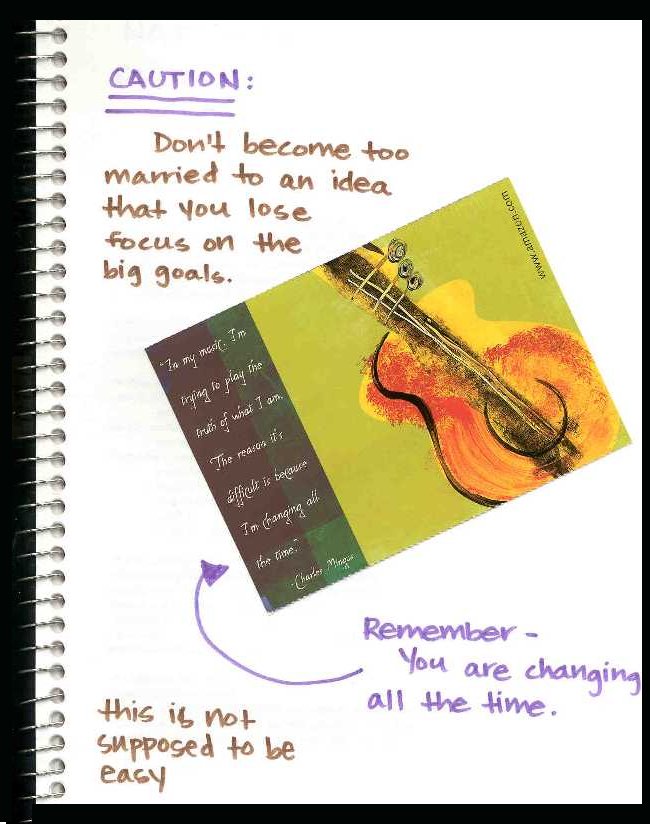 CAUTION:
Don't become too
married to an idea
that you lose
focus on the
big goals.
www.amazon.com
"In my music, I'm
trying to play the
truth of what I am.
The reason it's
difficult is because
I'm changing all
the time."
-Charles Mingus
Remember -
You are changing
all the time.
this is not
supposed to be
easy